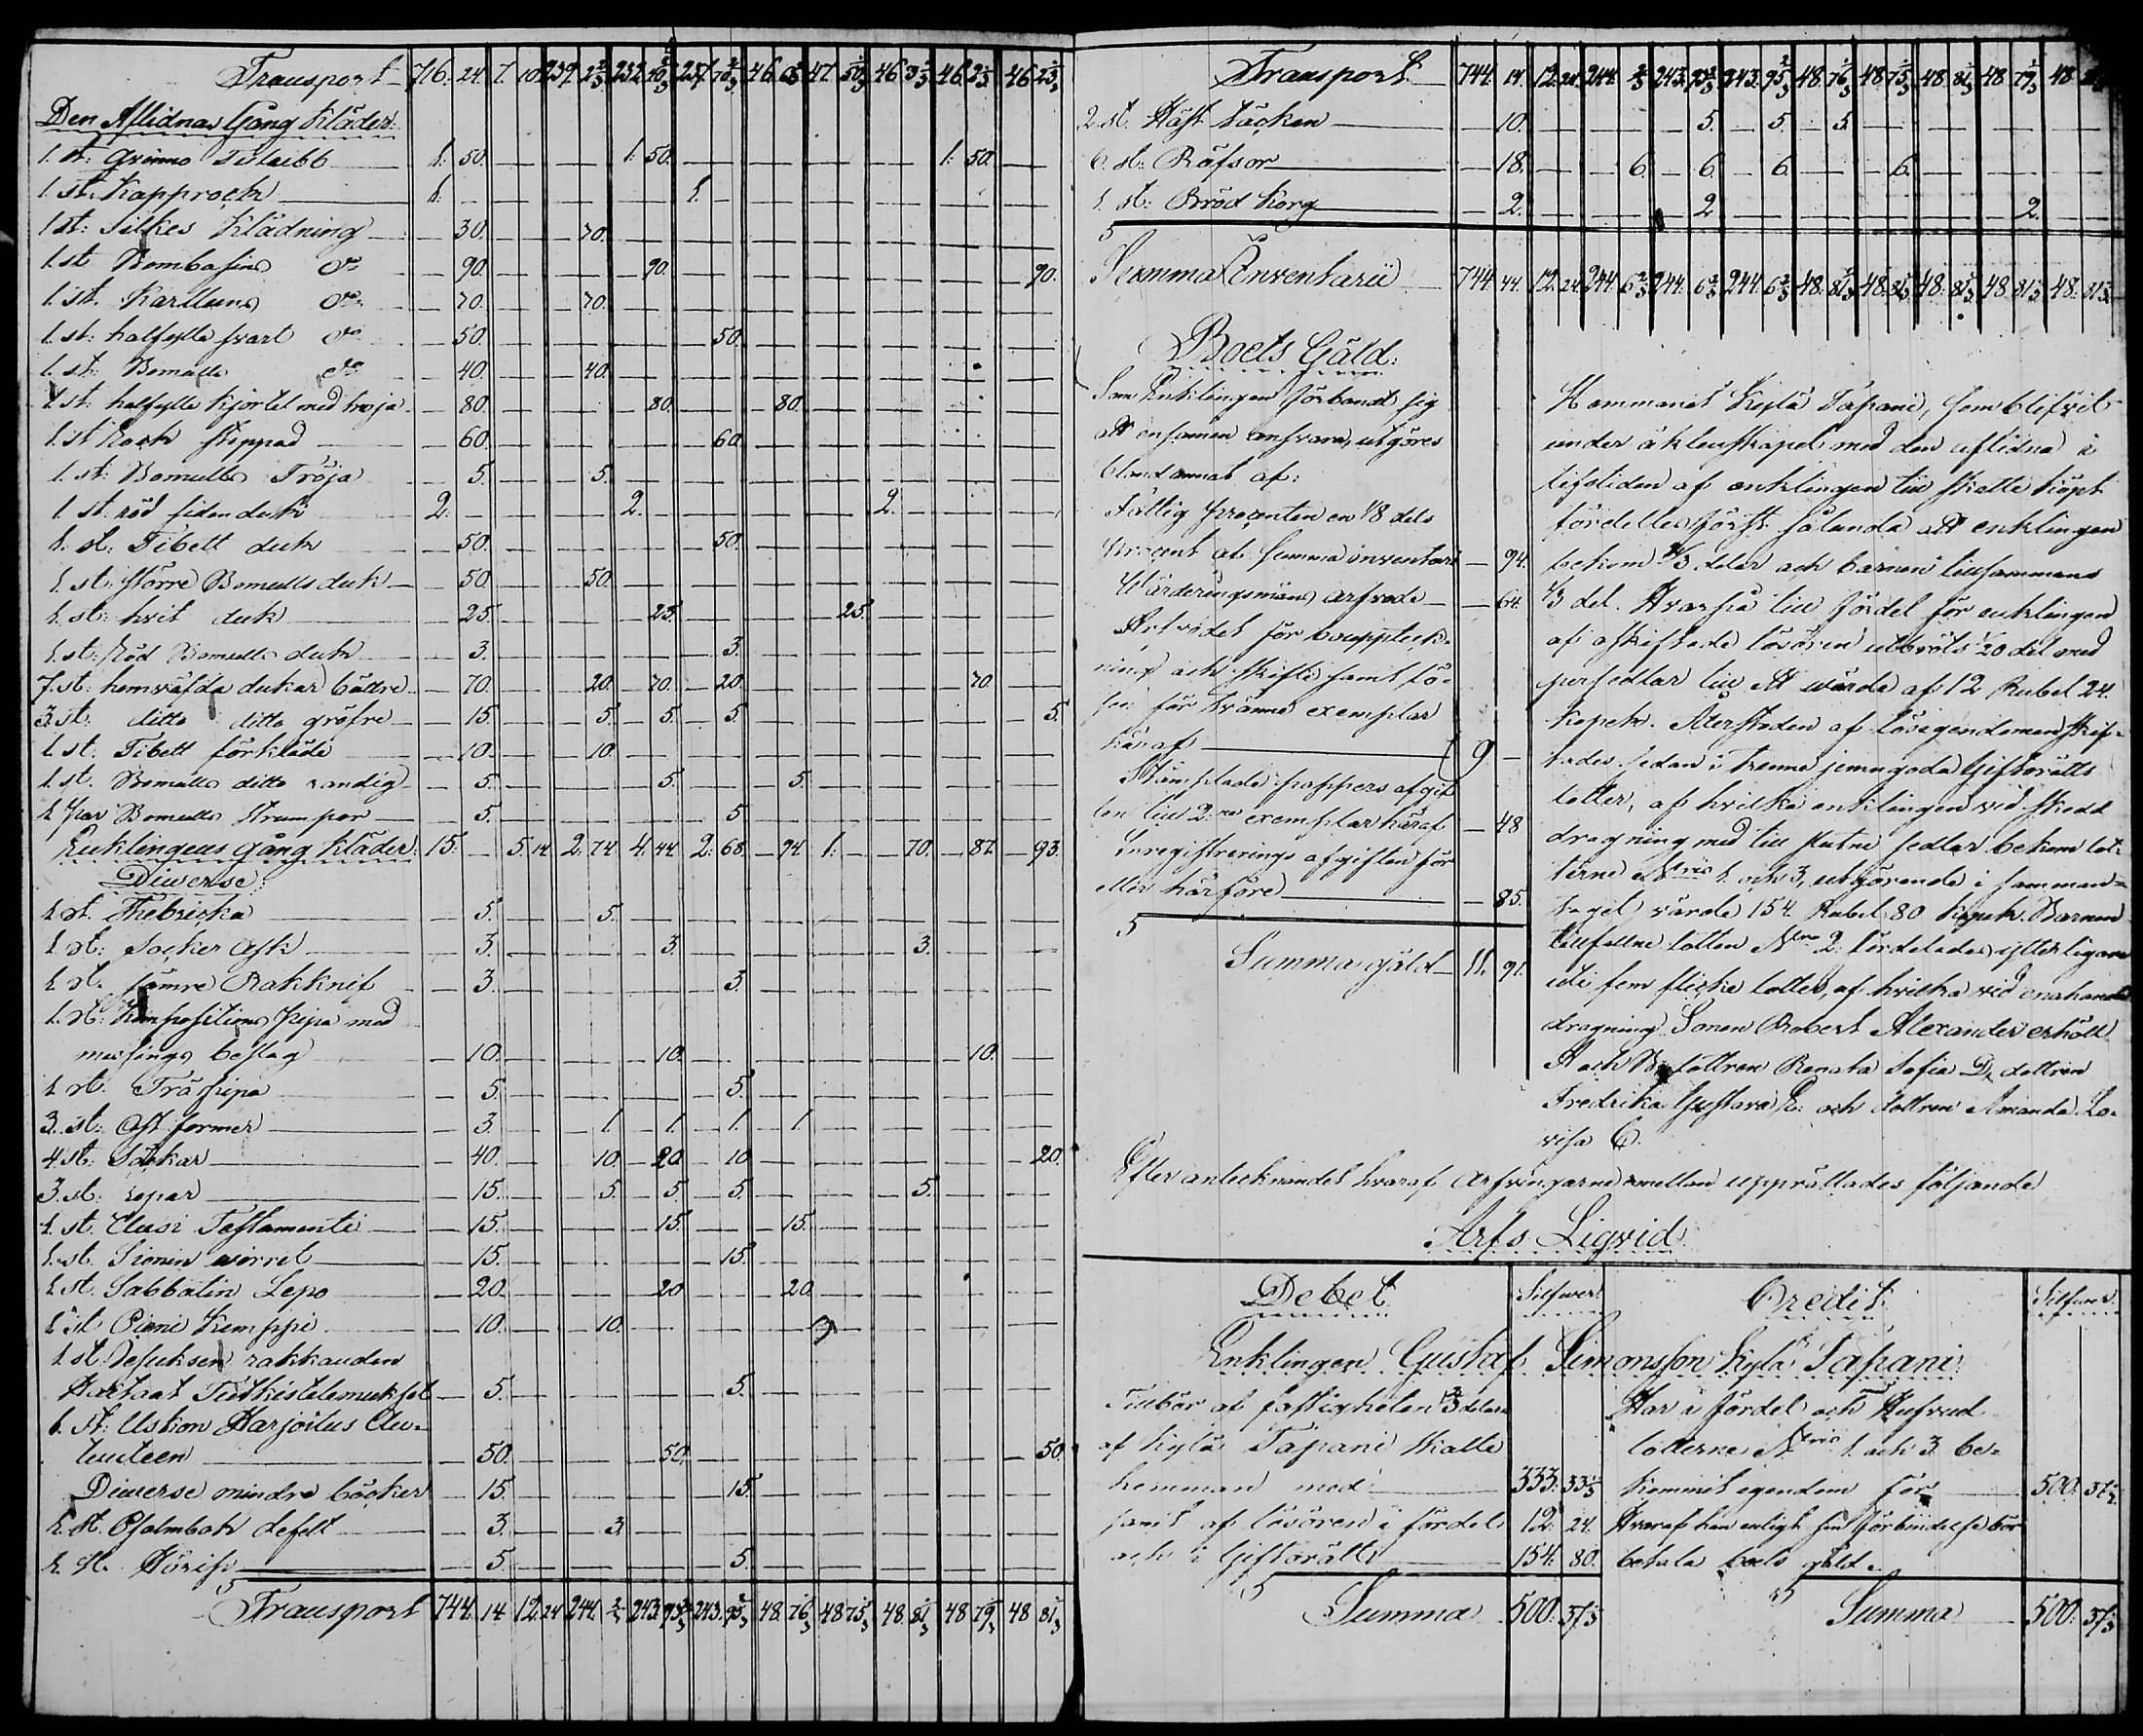 Transport 716. 24. 7. 10. 239. 2 2/3 232. 257. 46. 47. 46. 3 1/3 46. 2 1/3 46 2 1/3
Den Aflidnas Gång Kläder:
1. st: qvinno 1. 50. — — — — 1. 50. — — — — — — — — 1. 50. — —
1. st. Kapprock 1. — — — — — — — 1. — — — — — — — — — — —
1 st: Silkes Klädning — 30. — — — 70. — — — — — — — — — — — — — —
1. st Bombasins do — 90. — — — — — 90. — — — — — — — — — — — 90.
1. st. Kattuns do — 70. — — — 70. — — — — — — — — — — — — — —
1. st: halfylle svart do — 50. — — — — — — — 50. — — — — — — — — — —
1. st: Bomulls do — 40. — — — 40. — — — — — — — — — — — — — —
1. st: halfylle kjortel med tröja — 80. — — — — — 80. — — — 80. — — — — — — — —
1. st Rock — 60. — — — — — — — 60. — — — — — — — — — —
1. st: Bomulls Tröja — 5. — — — 5. — — — — — — — — — — — — — —
1. st: röd siden duk 2. — — — — — 2. — — — — — — — 2. — — — — —
1. st: Tibett duk — 50. — — — — — — — 50. — — — — — — — — — —
1. st: större Bomulls duk — 50. — — — 50. — — — — — — — — — — — — — —
1. st: hvit duk — 25. — — — — — 25. — — — — — 25. — — — — — —
1. st: Röd Bomulls duk — 3. — — — — — — — 3. — — — — — — — — — —
7. st: hemväfda dukar bättre — 70. — — — 20. — 70. — 20. — — — — — — — 70. — —
3. st: ditto ditto gröfre — 15. — — — 5. — 5. — 5. — — — — — — — — — 5.
1. st. Tibett förkläde — 10. — — — 10. — — — — — — — — — — — — — —
1. st. Bomulls ditto randig — 5. — — — — — 5. — — — 5. — — — — — — — —
1 par Bomulls strumpor — 5. — — — — — — — 5. — — — — — — — — — —
Enklingens gång kläder 15. — 5. 14 2. 74 4. 44 2. 68. — 94 1. — — 70. — 87. — 93.
Diverse:
1 st. — 5. — — — 5. — — — — — — — — — — — — — —
1 st: Socker Ask — 3. — — — — — 3. — — — — — — — 3. — — — —
1 st. sämre Rakknif — 3. — — — — — — — 3. — — — — — — — — — —
1. st: Kompositions pipa med
messings beslag — 10. — — — — — 10. — — — — — — — — — 10. — —
1 st. Träpipa — 5. — — — — — — — 5. — — — — — — — — — —
3. st: Ost former — 3. — — — 1. — 1. — 1. — 1. — — — — — — — —
4. st: Säckar — 40. — — — 10. — 20 — 10 — — — — — — — — — 20.
3. st: Lopar — 15. — — — 5. — 5. — 5. — — — — — 5. — — — —
1. st. Uusi Testamenti — 15. — — — — — 15. — — — 15. — — — — — — — —
1. st. Sionin wirret — 15. — — — — — — — 15. — — — — — — — — — —
1 st. Sabbatin Lepo — 20. — — — — — 20 — — — 20. — — — — — — — —
1 st Pieni Kimppi — 10. — — — 10. — — — — — — — — — — — — — —
1. st. Jesuksen rakkauden
Hartaat Tutkistelemukset — 5. — — — — — — — 5. — — — — — — — — — —
1. st: Uskon Harjoitus Au-
tuuteen — 50. — — — — — 50. — — — — — — — — — — — 50.
Diverse mindre böcker — 15. — — — — — — — 15. — — — — — — — — — —
1. st. Psalmbok defekt — 3. — — — 3. — — — — — — — — — — — — — —
1. st. — 5. — — — — — — — 5. — — — — — — — — — —
Transport 744. 14. 12. 24 244. 2/3 243. 95 2/3 243. 95 2/3 48. 76 1/3 48 75 1/3 48. 81 1/3 48 79 1/3 48 81 1/3
Transport 744. 14. 12. 24. 244. 2/3 243. 95 2/3 243. 95 2/3 48. 76 1/3 48. 75 1/3 48. 81 1/3 48 79 1/3 48
2. st. Häst täcken — 10. — — — — — 5. — 5. — 5. — — — — — — — —
6. st. Räfsor — 18. — — — 6. — 6. — 6. — — — 6. — — — — — —
1. st: Bröd Korg — 2. — — — — — 2. — — — — — — — — — 2. — —
Summa Inventarii 744. 44. 12. 24. 244. 6 2/3 244. 6 2/3 244. 6 2/3 48. 81 1/3 48. 81 1/3 48. 81 1/3 48 81 1/3 48. 81 1/3
Boets Gäld:
Som Enklingen förbandt sig
att ensamen ansvara, utgöres
bland annat af:
Fattig procenten en 1/8 dels
procent af summa inventarii — 94.
Wärderingsmäns arfvode — 64.
Arfvodet för bouppteck-
ning och skifte samt lö-
sen för tvänne exemplar
häraf 9 —
Stämplade pappers afgif
ten till 2:ne exemplar häraf — 48
Inregistrerings afgiften för
eller härföre — 85.
Summa gäld 11. 91.
Hemmanet Kylä Tapani, som blifvit
under äktenskapet med den aflidna i
lifstiden af enklingen till skatte köpt
fördelles först sålunda att enklingen
bekom 2/3 delar och barnen tillsammans
1/3 del. Hvarpå till fördel för enklingen
af oskiftade lösören utbröts 1/20 del med
persedlar till ett wärde af 12 Rubel 24.
kopek. Återstoden af lösegendomen skif-
tades sedan i trenne jemngoda Giftorätts
lotter, af hvilka enklingen vid skedd
dragning med till slutne sedlar bekom lot-
terne N:ris 1. och 3, utgörande i samman-
taget värde 154 Rubel 80 Kopek. Barnen
tillfallne lotten N:ro 2. fördelades ytterligare
uti fem flicke lotter, af hvilka vid enahanda
dragning Sonen Robert Alexander erhöll
A och B, dottren Renata Sofia D, dottren
Fredrika Gustava E. och dottren Amanda Lo-
visa C.
Efter antecknandet hvaraf Arfvingarne emellan upprättades följande
Arfs Liqvid
Debet Silfwer. Credit Silfwer
Enklingen Gustaf Simonsson Kylä Tapani
Tillbör af fastigheten 2/3 delar
af Kylä Tapani Skatte
hemman med 333. 33 1/3
samt af lösören i fördel 12. 24.
och i Giftorätt 154. 80.
Summa 500. 37 1/3
Har i fördel och Hufvud
lotterne N:ris 1. och 3. be-
kommit egendom för 500. 37 1/3
Hvaraf han enligt sin förbindelse bör
betala boets gäld.
Summa 500. 37 1/3